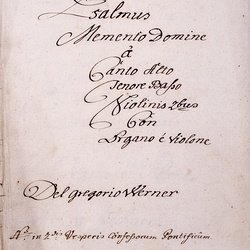 Psalmus
Memento Domine
à
Canto Alto
Tenore Basso
Violinis 2bus
Con
Organo è Violone
Del gregorio Werner
Ad in 2dis Vesperis Confessorum Pontificum.